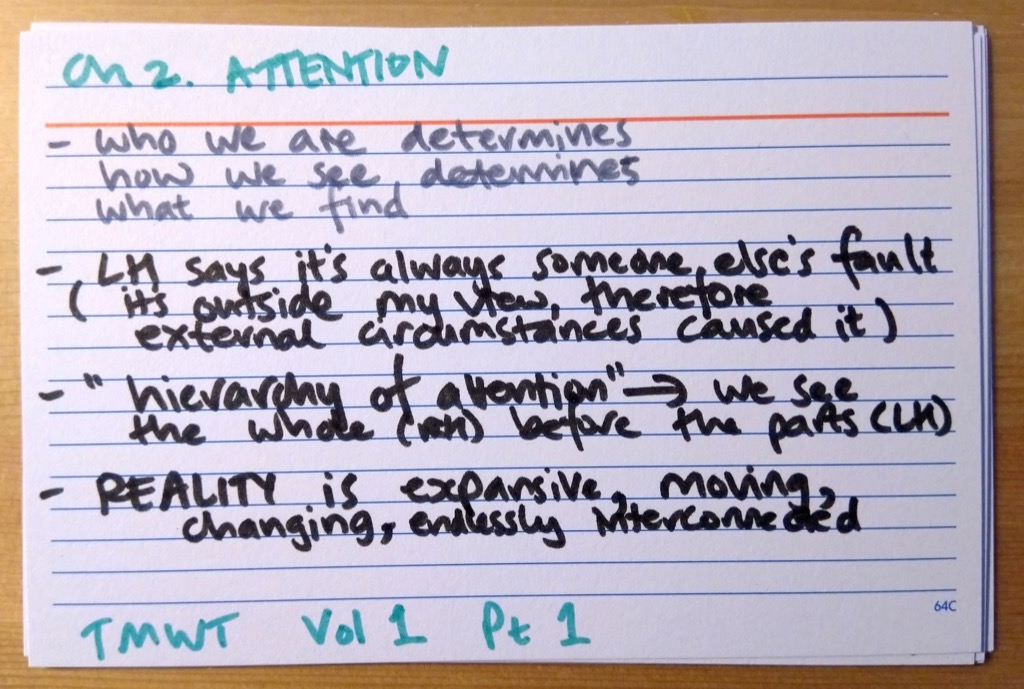 Ch 2. ATTENTION
- who we are determines
how we see, determines
what we find
- LH says it's always someone else's fault
( its outside my view, therefore
external circumstances caused it )
- "hierarchy of attention" → we see
the whole (RH) before the parts (LH)
- REALITY is expansive, moving,
changing, endlessly interconnected
64C
TMWT Vol 1 Pt 1